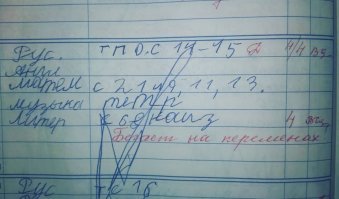 Рус. тпо.с 14-15
Англ
Матем с 21 №9, 11, 13.
музыка тетр
Литер с 69 наиз
Бегает на переменах
Рус тс 16